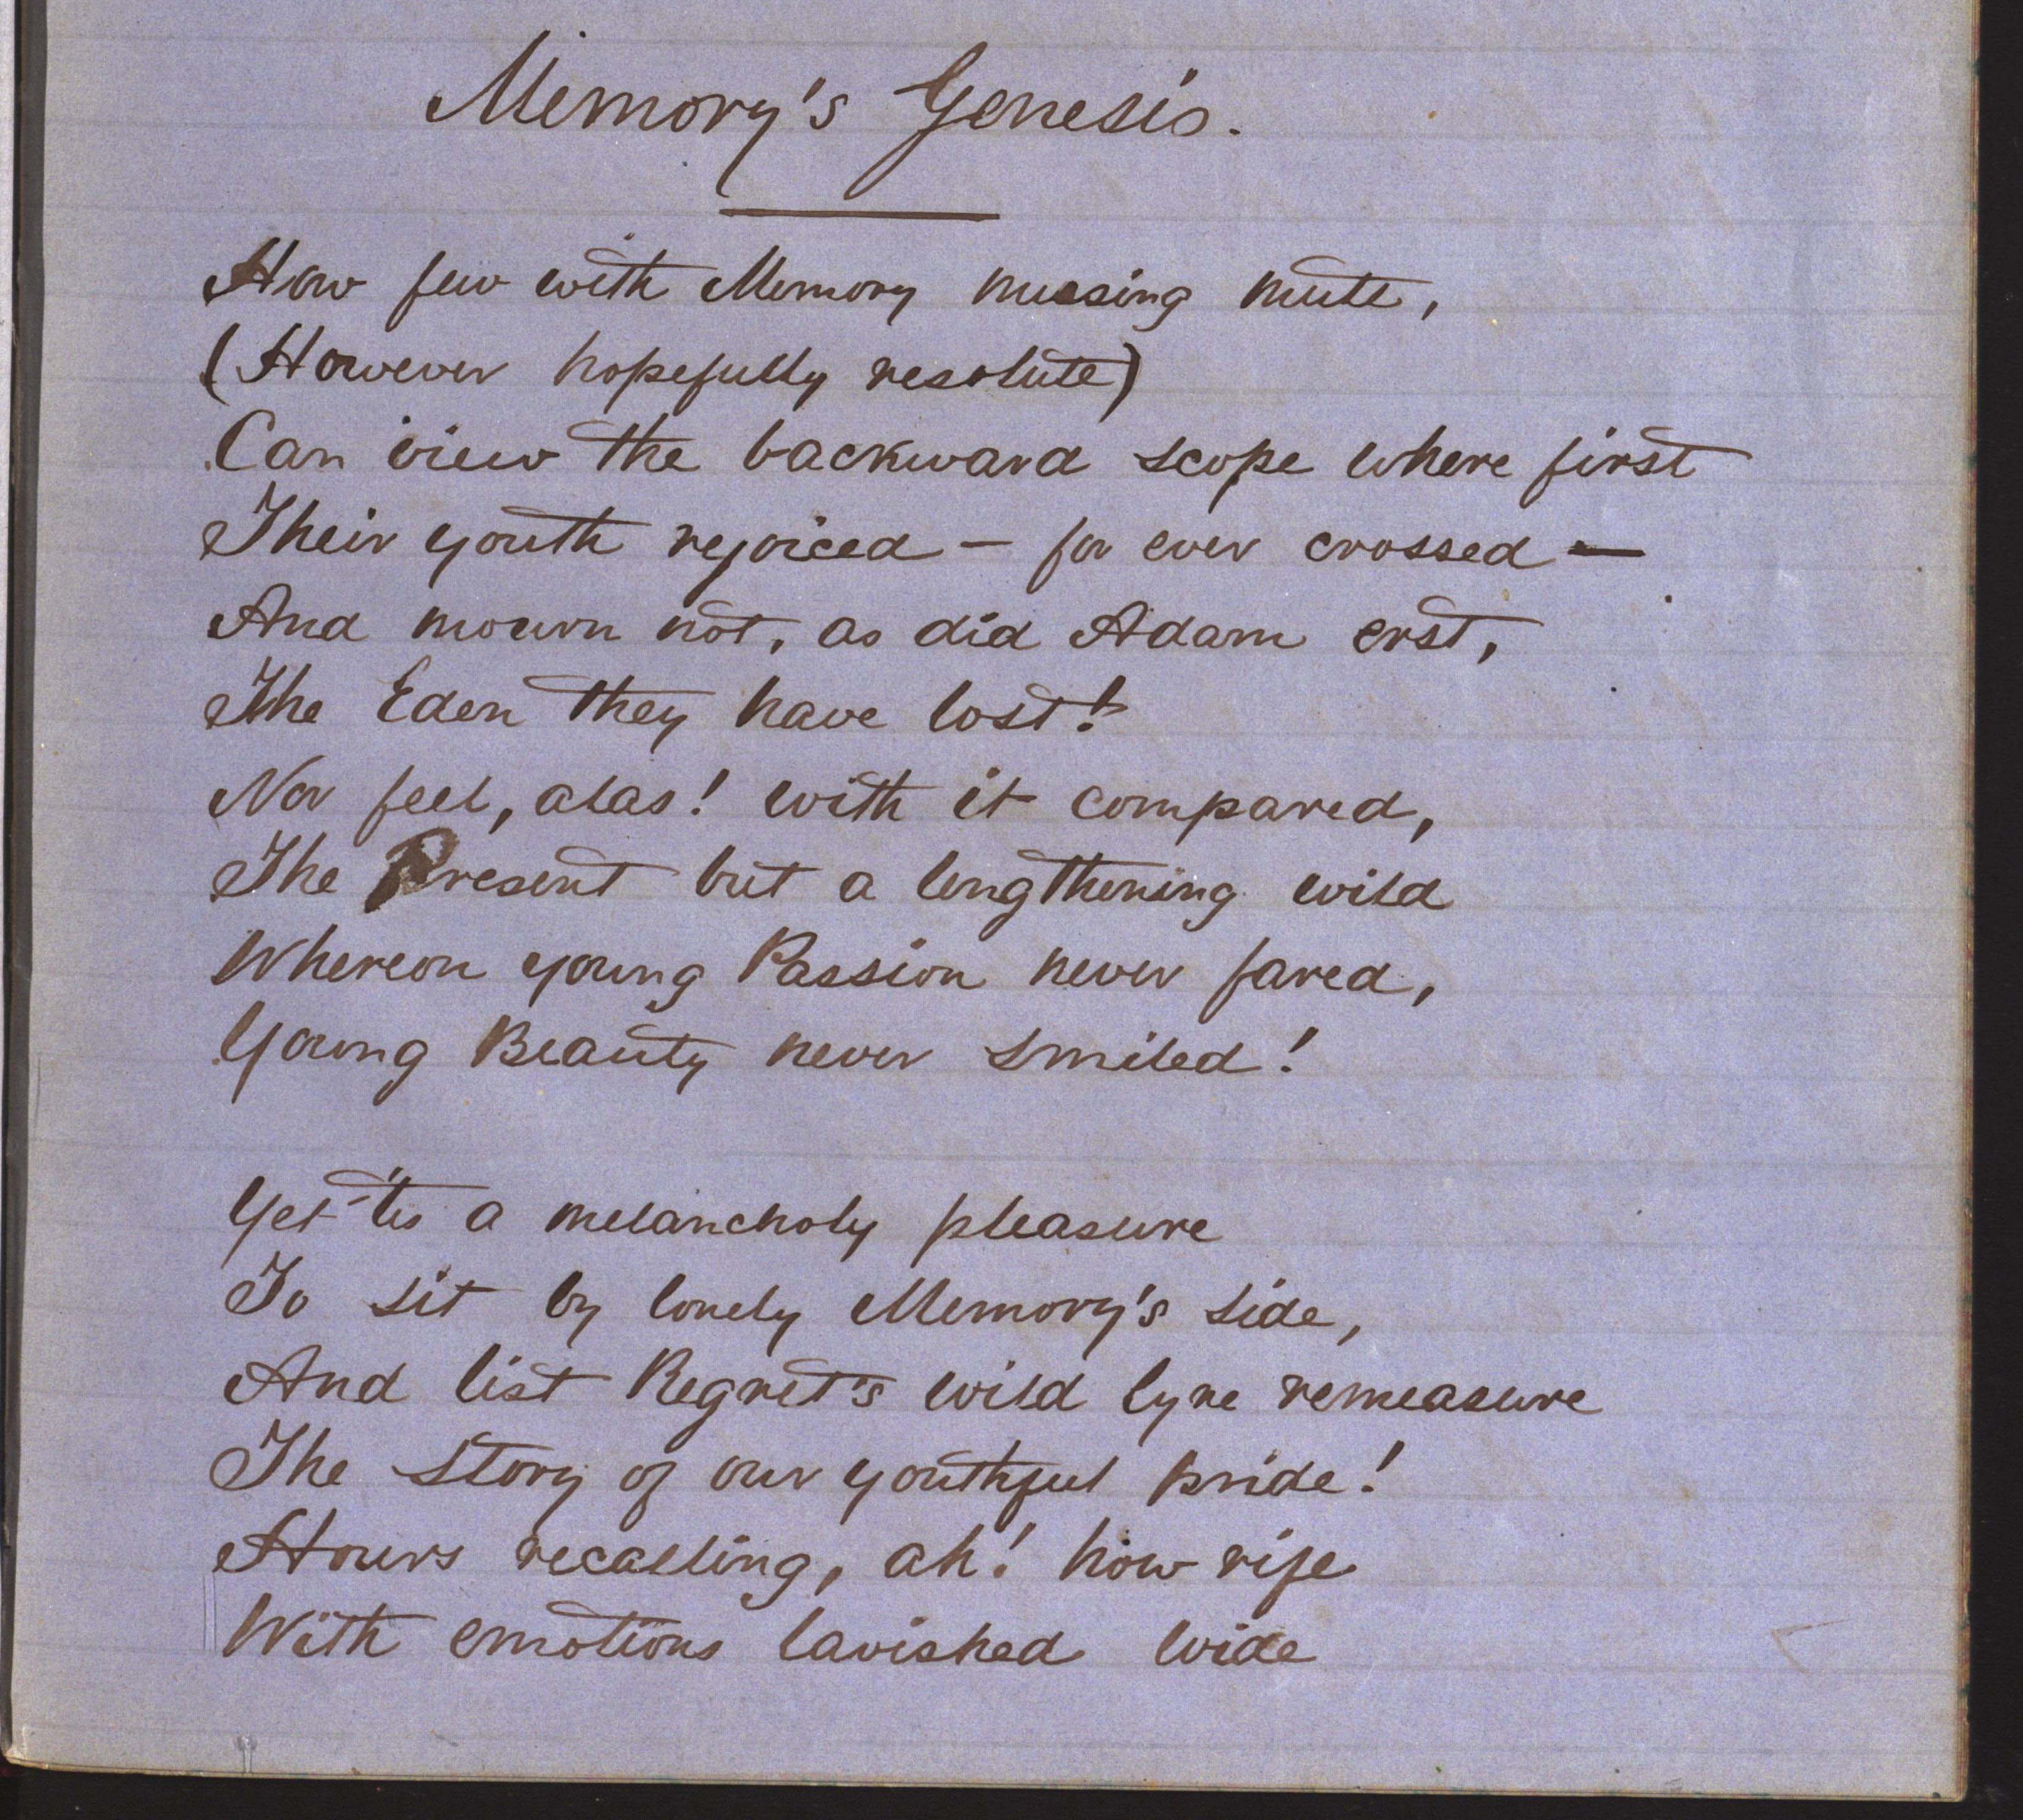 Memory's Genesis.
How few with Memory musing mute,
(However hopefully resolute)
Can view the backward scope where first
Their youth rejoiced — for ever crossed —
And mourn not, as did Adam erst,
The Eden they have lost!
Nor feel, alas! with it compared,
The Present but a lengthening wild
Whereon young Passion never fared,
Young Beauty never smiled!
Yet 'tis a melancholy pleasure
To sit by lonely Memory's side,
And list Regret's wild lyre remeasure
The story of our youthful pride!
Hours recalling, ah! how rife
With emotions lavished wide